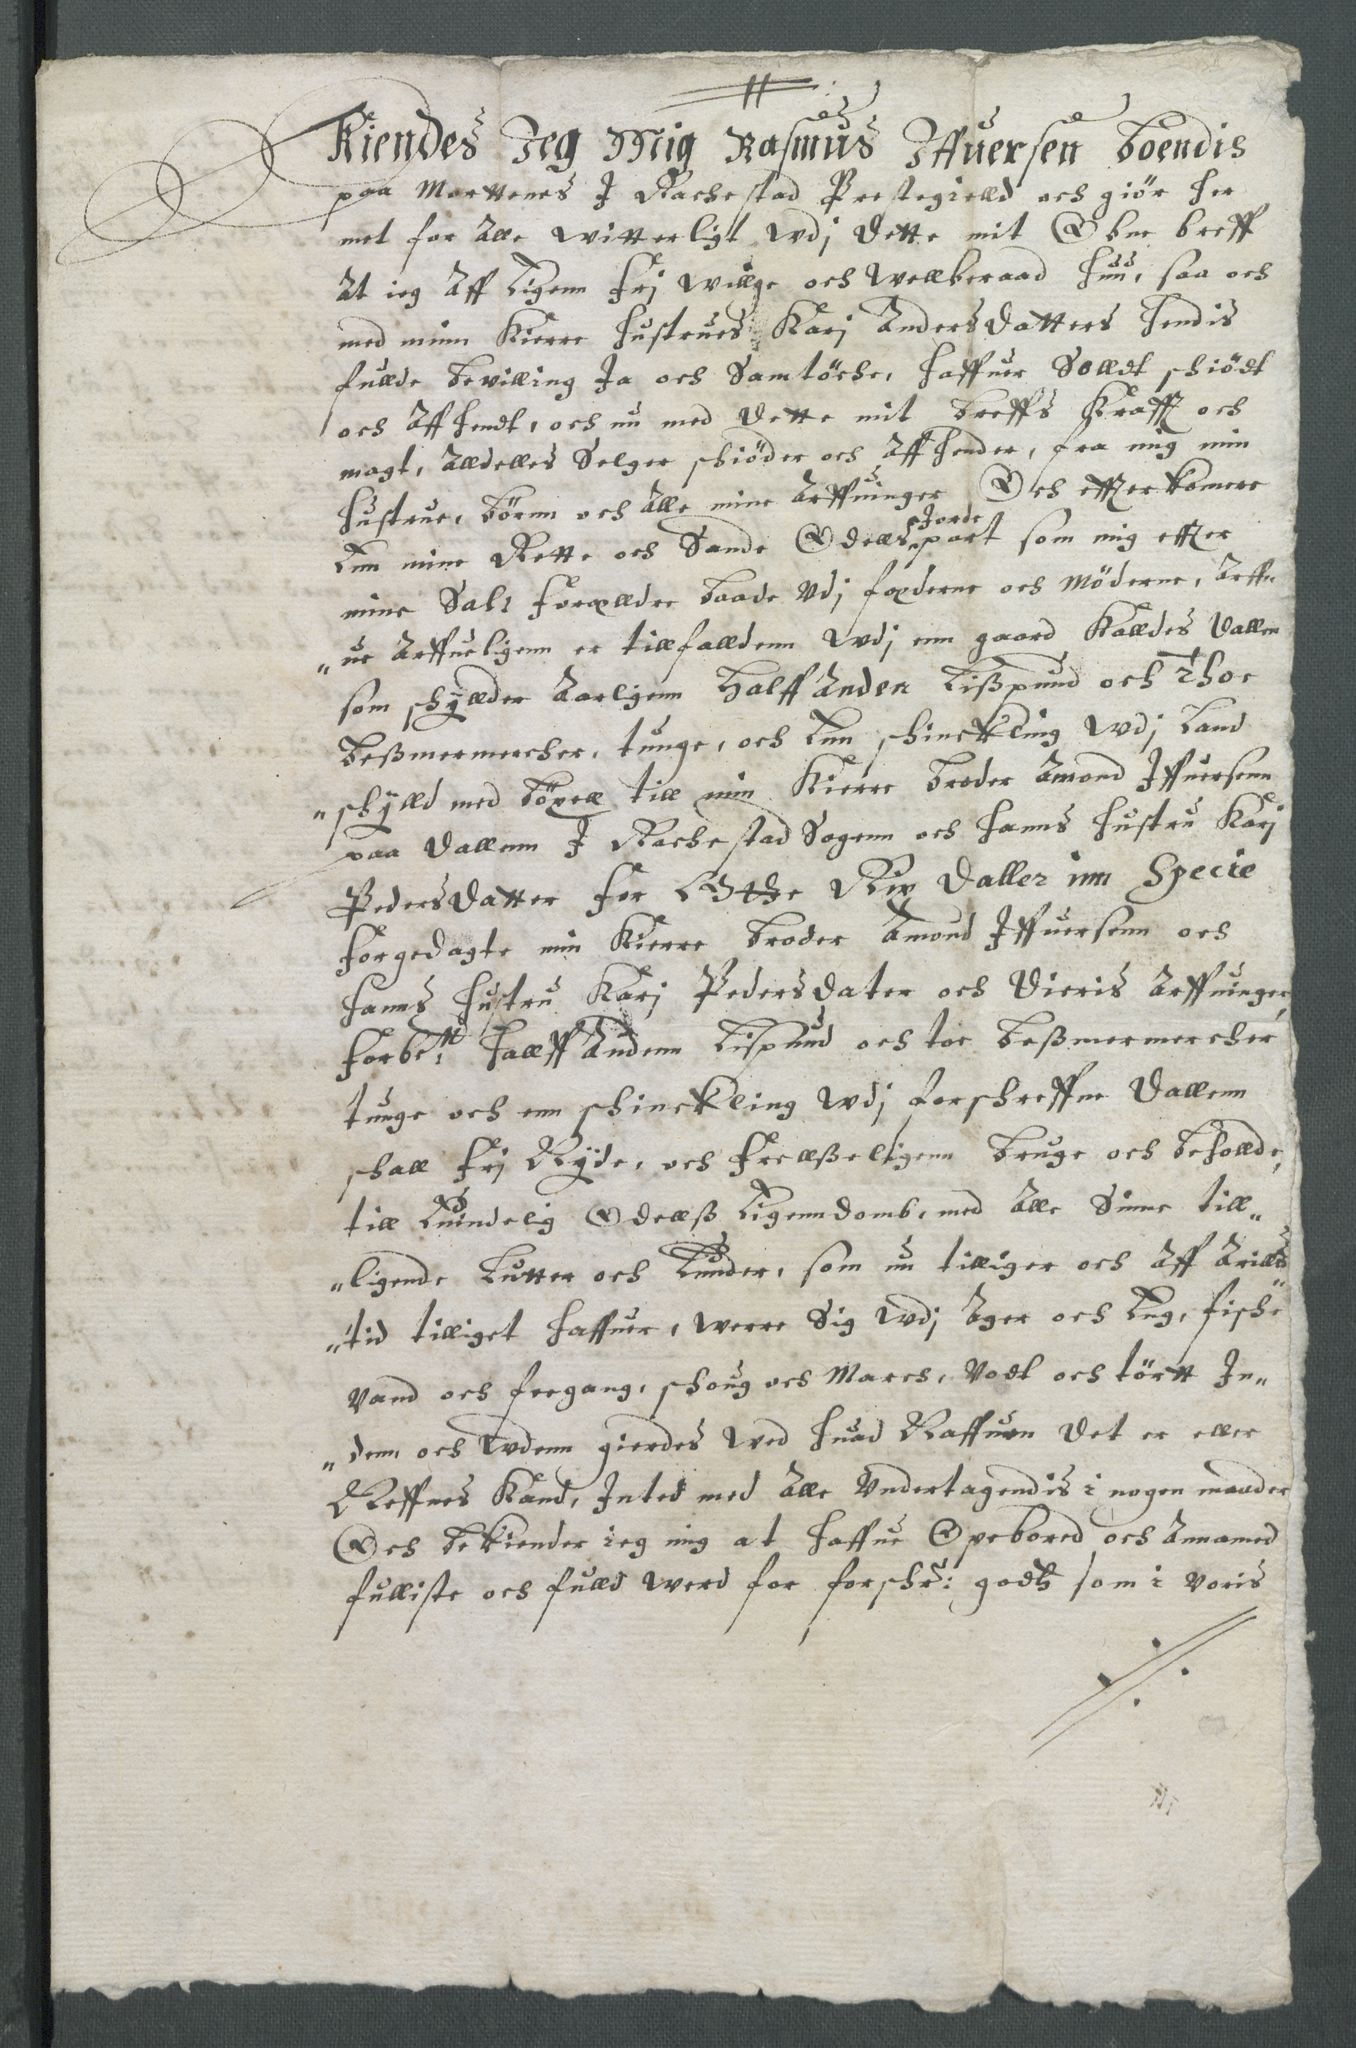 Kiendes Jeg Mig Rasmus Iffuersen boendis
paa Morttenes I Rachestad Prestegielld och giör her
met for Alle witterligt wdj dette mit Obne breff
At ieg Aff Eigenn frj willge och wellberaad huu, saa och
med minn Kierre hustrues Karj Anders datters hendis
fullde bevilling Ja och Samtöche, haffuer Solldt schiödt
och Aff hendt, och nu med dette mit breffs Krafft och
magt, Alldelles Selger schiöder och Affhender, fra mig min
hustrue, börnn och Alle mine Arffuinger Och effterkomere
Enn mine Rette och Sande Odells Jorde part som mig effter
mine Sali foroelldre baade Vdj foderne och Möderne, Arff„
„ue Arffueligenn er tillfalldenn wdj enn gaard Kalldes Dallen
som schÿllder Aarligenn Halff Anden Lißpund och Thoe
beßmermercher, tunge, och Enn schinckling wdj Land
„schÿlld med böxell till min Kierre broder Amond Iffuersenn
paa Dallenn I Rachestad Sogenn och hanns hustru Karj
Peders datter for Otthe Rix Daller inn Specie
forgedagte min Kierre broder Amond Iffuersenn och
hanns hustru Karj Peders dater och dieris Arffuinger,
forbete: hallff Andenn Lispund och toe beßmermercher
tunge och enn schinckling wdj forschreffne Dallenn
schall frj Nÿde, och frellßeligenn bruge och beholde,
till Euindelig Odellß Eigenndomb, med Alle Sinne till„
„ligende Lutter och Lunder, som nu tilliger och Aff Arillds
„tid tilliget haffuer, werre Sig wdj Ager och Eng, fische
Vand och feegang, schoug och March, Vodt och törtt In„
„denn och wdenn gierdes wed huad Naffuen det er eller
Neffnes Kand, Inted med Alle Vndertagendis i nogen maader
Och bekiender ieg mig at haffue Opebored och Annamed
fulliste och fulld werd for forschr: godtz som i Voris